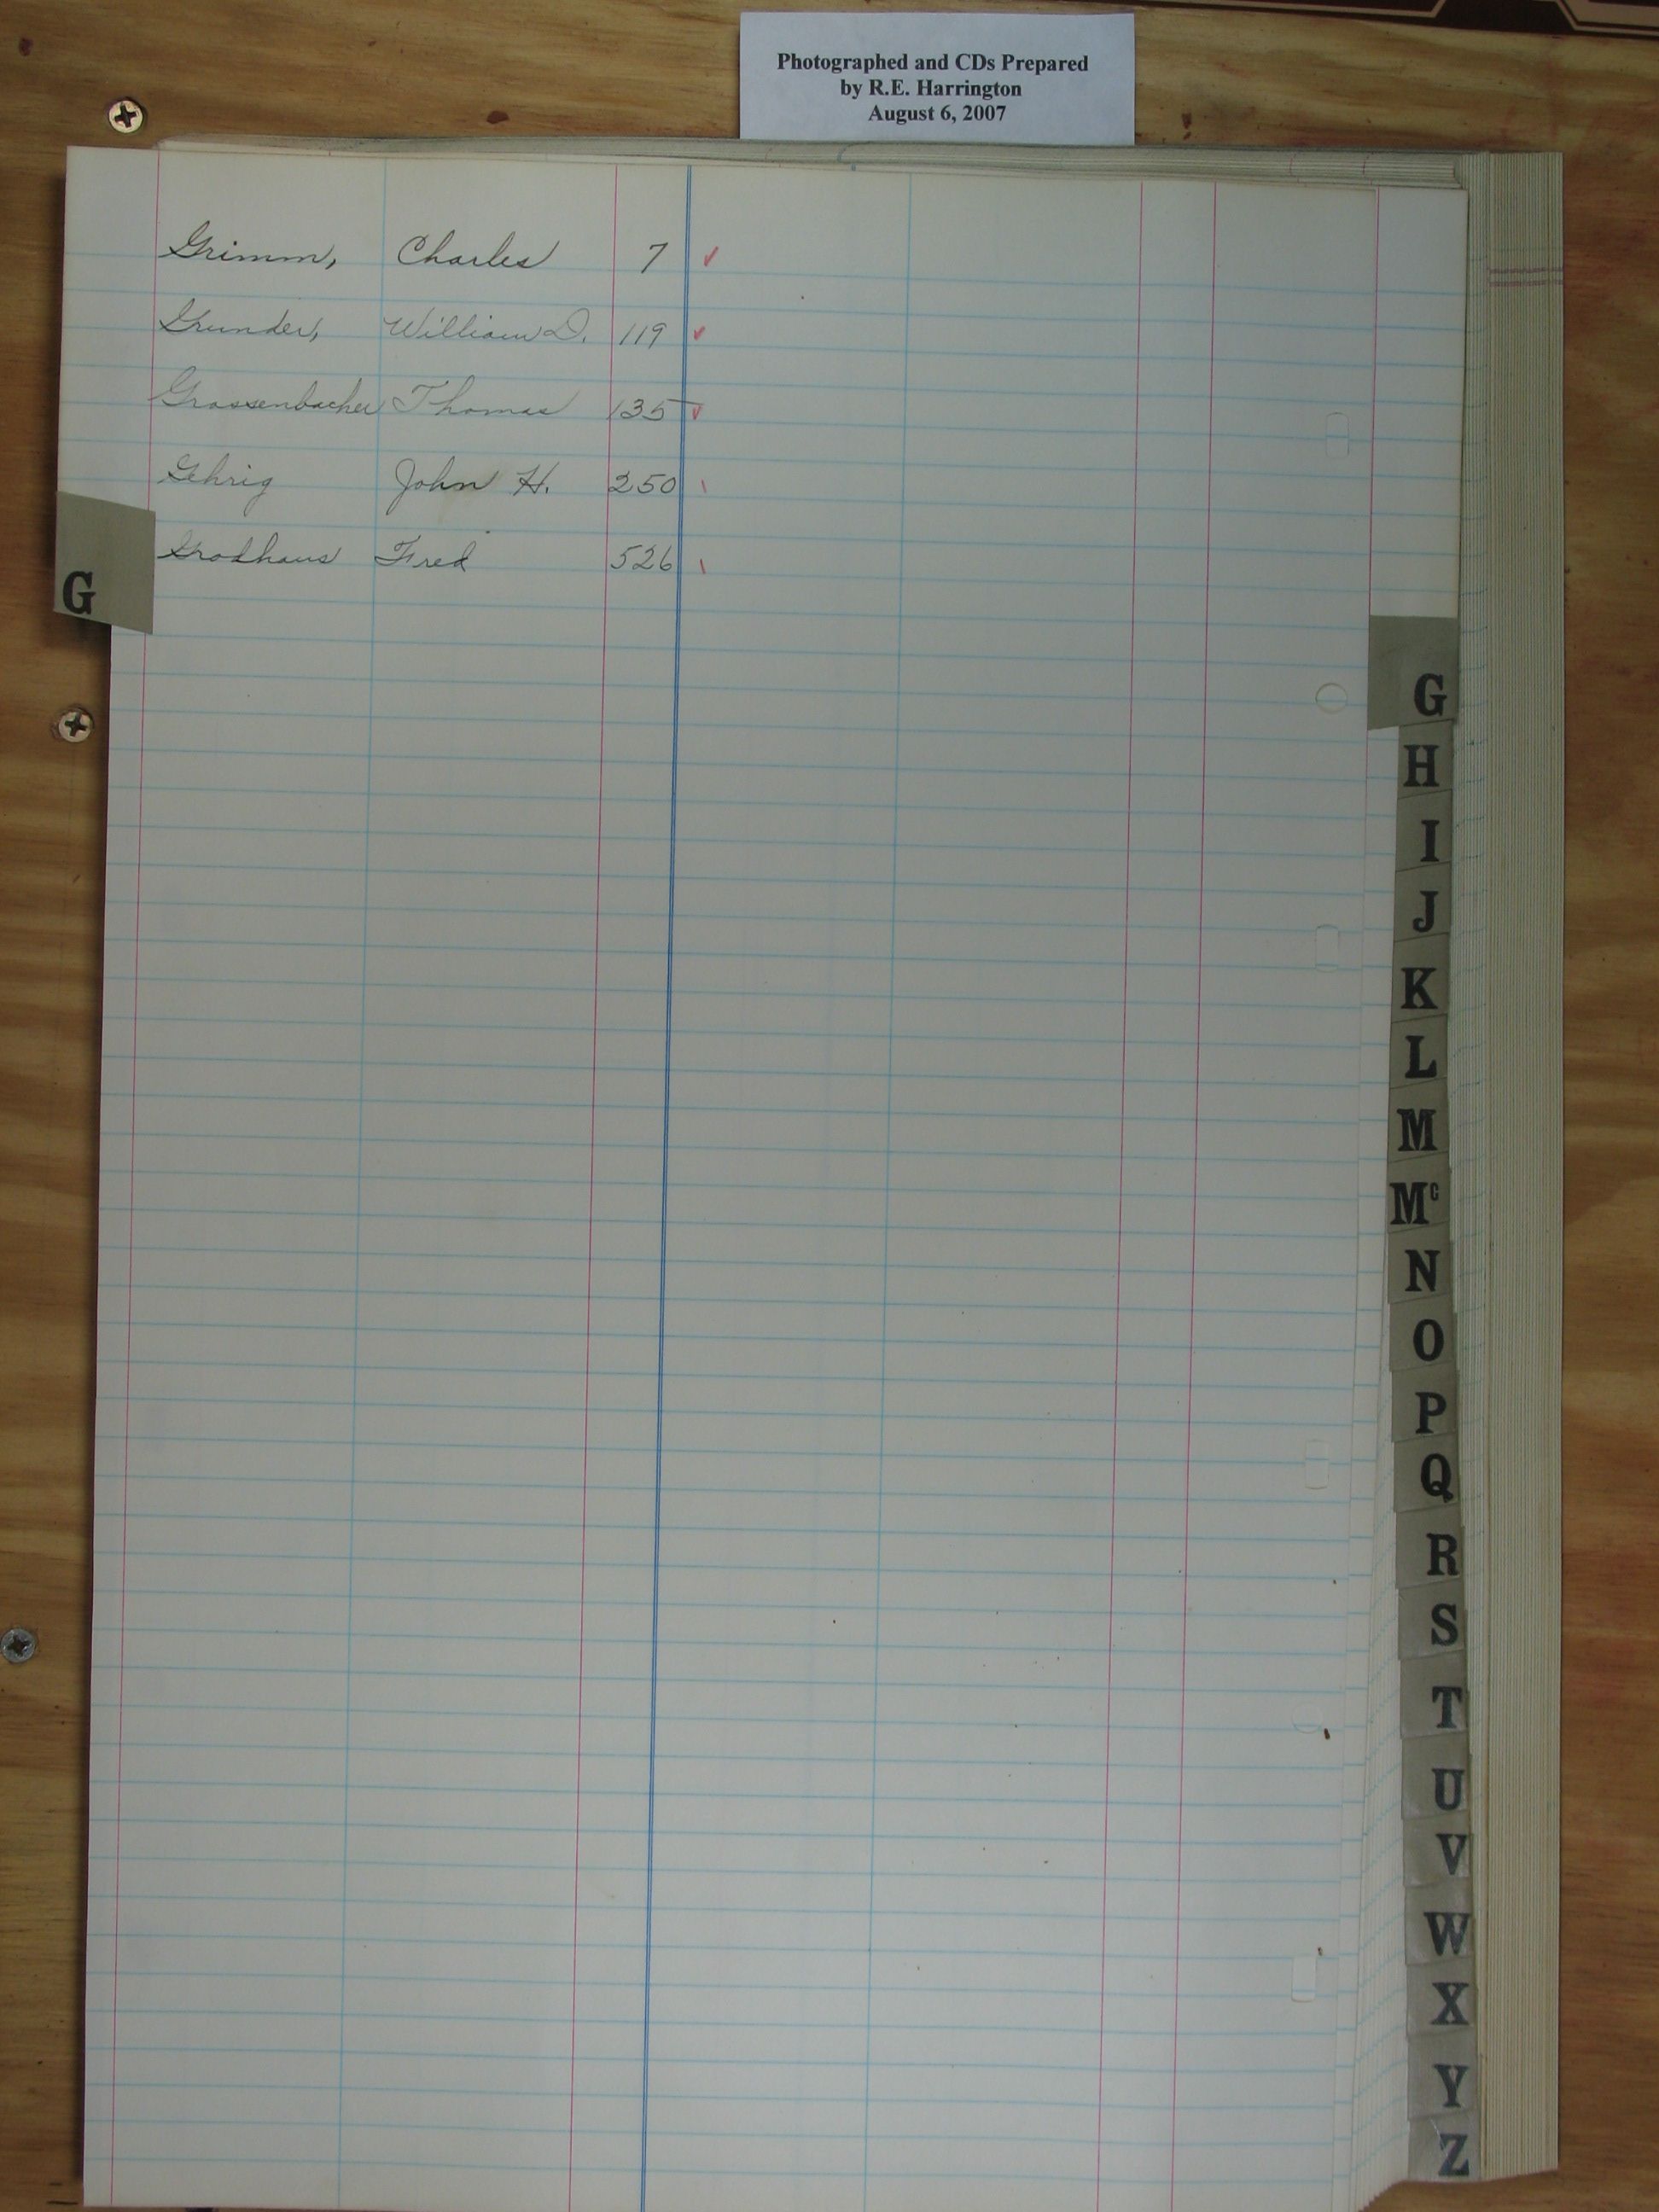 Photographed and CDs Prepared
by R.E. Harrington
August 6, 2007
Grimm, Charles 7 ✓
Grunder, William D. 119 ✓
Grossenbacher Thomas 135 ✓
Gehrig John H. 250 \
Grodhaus Fred 526 \
G
G
H
I
J
K
L
M
Mc
N
O
P
Q
R
S
T
U
V
W
X
Y
Z